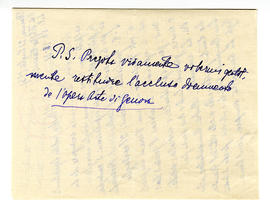 P.S. Pregola vivamente volermi gentil-
mente restituire l'accluso documento
de l'Opera Arte di Genova